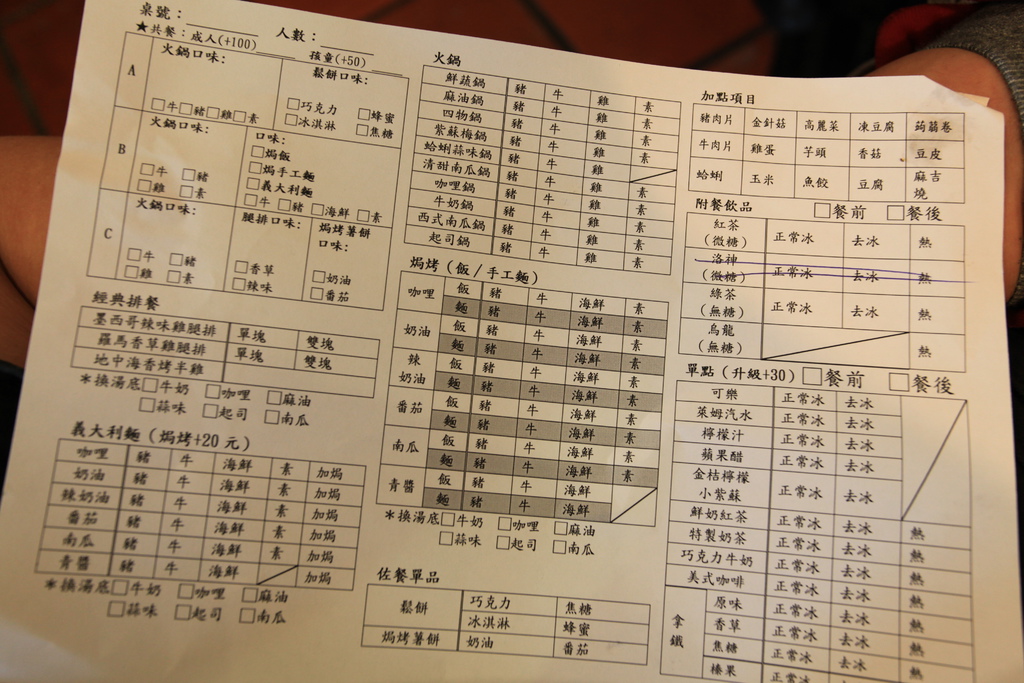 桌號：
人數：
★共餐：成人(+100)
孩童(+50)
A
火鍋口味：
□牛□豬□雞□素
鬆餅口味：
□巧克力 □蜂蜜
□冰淇淋 □焦糖
B
火鍋口味：
□牛 □豬
□雞 □素
口味：
□焗飯
□焗手工麵
□義大利麵
□牛 □豬 □海鮮 □素
C
火鍋口味：
□牛 □豬
□雞 □素
腿排口味：
□香草
□辣味
焗烤薯餅
口味：
□奶油
□番茄
經典排餐
墨西哥辣味雞腿排 單塊 雙塊
羅馬香草雞腿排 單塊 雙塊
地中海香烤半雞
＊換湯底□牛奶 □咖哩 □麻油
□蒜味 □起司 □南瓜
義大利麵（焗烤+20 元）
咖哩 豬 牛 海鮮 素 加焗
奶油 豬 牛 海鮮 素 加焗
辣奶油 豬 牛 海鮮 素 加焗
番茄 豬 牛 海鮮 素 加焗
南瓜 豬 牛 海鮮 素 加焗
青醬 豬 牛 海鮮 加焗
＊換湯底□牛奶 □咖哩 □麻油
□蒜味 □起司 □南瓜
火鍋
鮮蔬鍋 豬 牛 雞 素
麻油鍋 豬 牛 雞 素
四物鍋 豬 牛 雞 素
紫蘇梅鍋 豬 牛 雞 素
蛤蜊蒜味鍋 豬 牛 雞
清甜南瓜鍋 豬 牛 雞 素
咖哩鍋 豬 牛 雞 素
牛奶鍋 豬 牛 雞 素
西式南瓜鍋 豬 牛 雞 素
起司鍋 豬 牛 雞 素
焗烤（飯 / 手工麵）
咖哩 飯 豬 牛 海鮮 素
麵 豬 牛 海鮮 素
奶油 飯 豬 牛 海鮮 素
麵 豬 牛 海鮮 素
辣
奶油 飯 豬 牛 海鮮 素
麵 豬 牛 海鮮 素
番茄 飯 豬 牛 海鮮 素
麵 豬 牛 海鮮 素
南瓜 飯 豬 牛 海鮮 素
麵 豬 牛 海鮮 素
青醬 飯 豬 牛 海鮮
麵 豬 牛 海鮮
＊換湯底□牛奶 □咖哩 □麻油
□蒜味 □起司 □南瓜
佐餐單品
鬆餅 巧克力 焦糖
冰淇淋 蜂蜜
焗烤薯餅 奶油 番茄
加點項目
豬肉片 金針菇 高麗菜 凍豆腐 蒟蒻卷
牛肉片 雞蛋 芋頭 香菇 豆皮
蛤蜊 玉米 魚餃 豆腐 麻吉
燒
附餐飲品 □餐前 □餐後
紅茶
（微糖） 正常冰 去冰 熱
洛神
（微糖） 正常冰 去冰 熱
綠茶
（無糖） 正常冰 去冰 熱
烏龍
（無糖） 熱
單點（升級+30）□餐前 □餐後
可樂 正常冰 去冰
萊姆汽水 正常冰 去冰
檸檬汁 正常冰 去冰
蘋果醋 正常冰 去冰
金桔檸檬
小紫蘇 正常冰 去冰
鮮奶紅茶 正常冰 去冰 熱
特製奶茶 正常冰 去冰 熱
巧克力牛奶 正常冰 去冰 熱
美式咖啡 正常冰 去冰 熱
拿鐵
原味 正常冰 去冰 熱
香草 正常冰 去冰 熱
焦糖 正常冰 去冰 熱
榛果 正常冰 去冰 熱